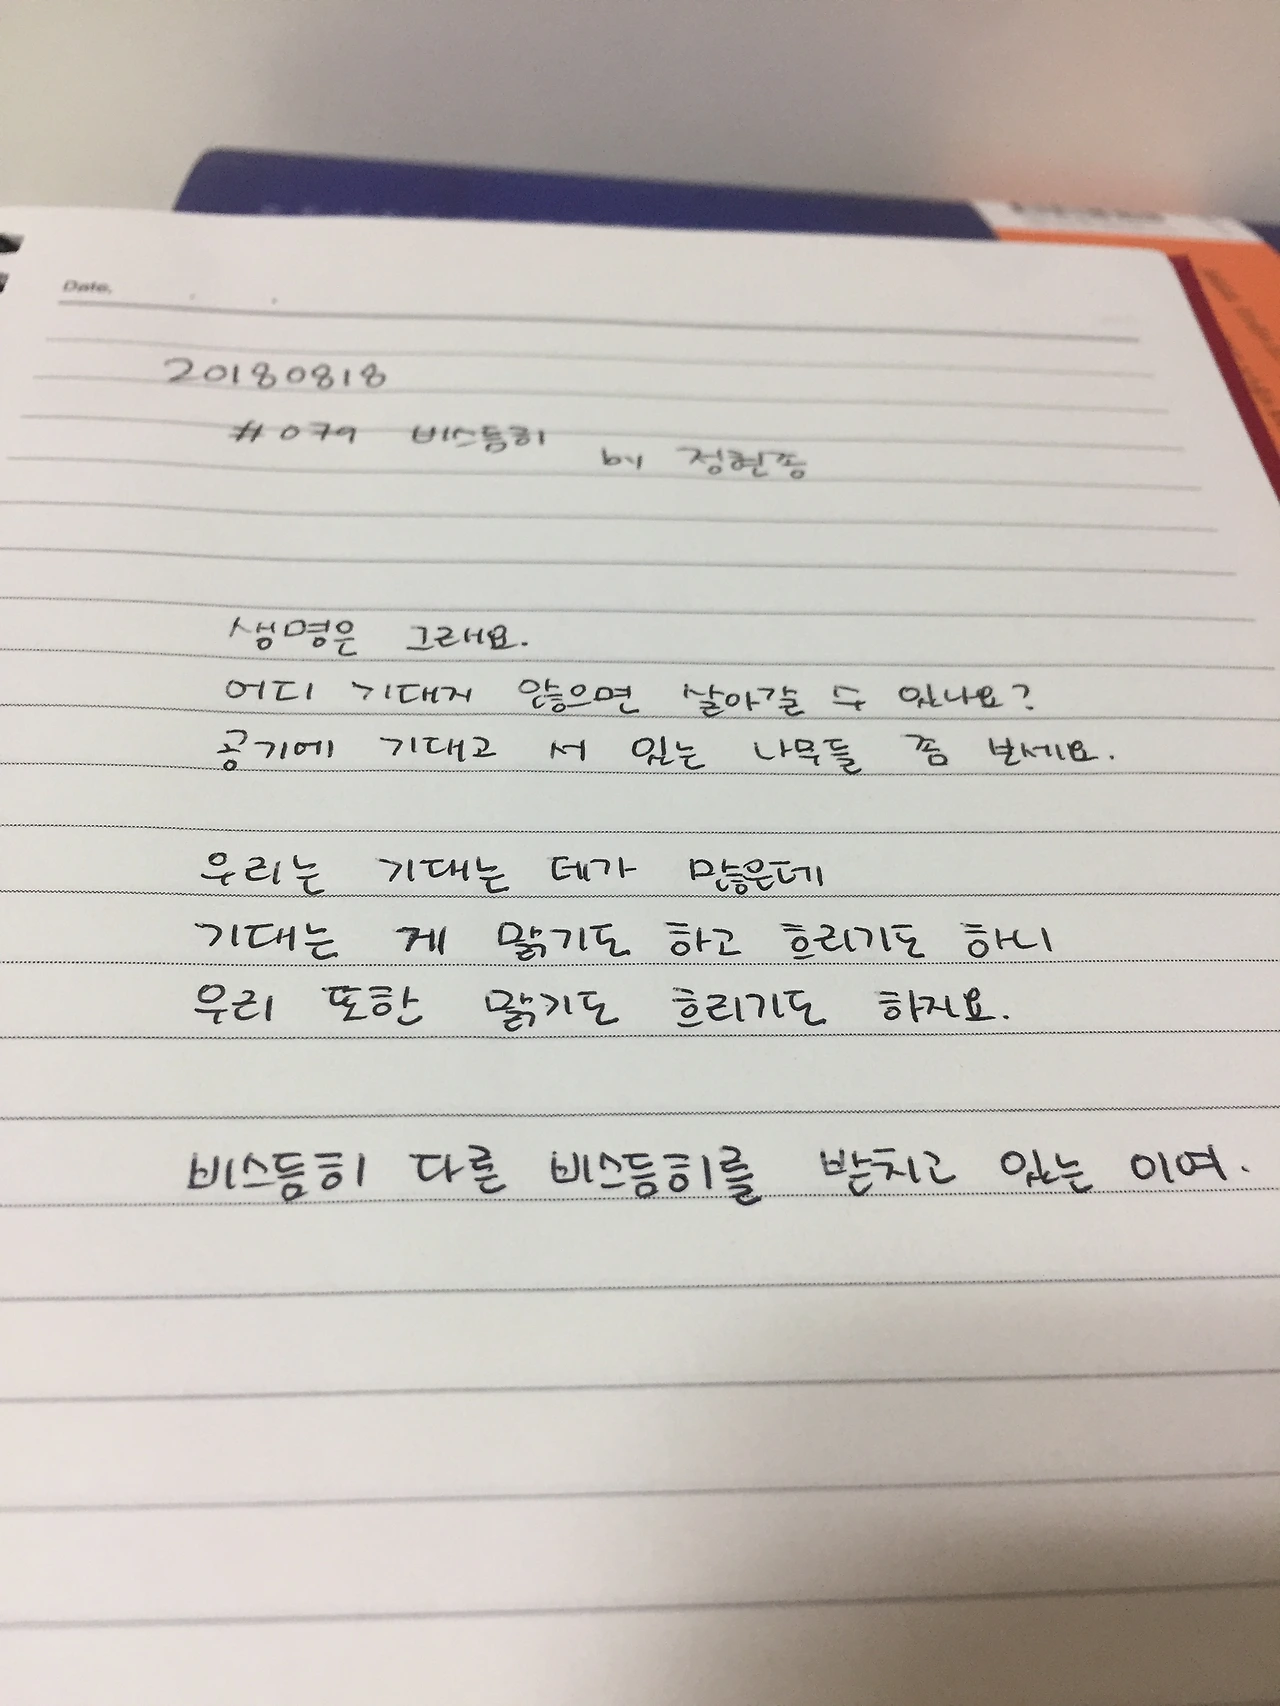 Date.
20180818
#079 비스듬히
by 정현종
생명은 그래요.
어디 기대지 않으면 살아갈 수 있나요?
공기에 기대고 서 있는 나무들 좀 보세요.
우리는 기대는 데가 많은데
기대는 게 맑기도 하고 흐리기도 하니
우리 또한 맑기도 흐리기도 하지요.
비스듬히 다른 비스듬히를 받치고 있는 이여.